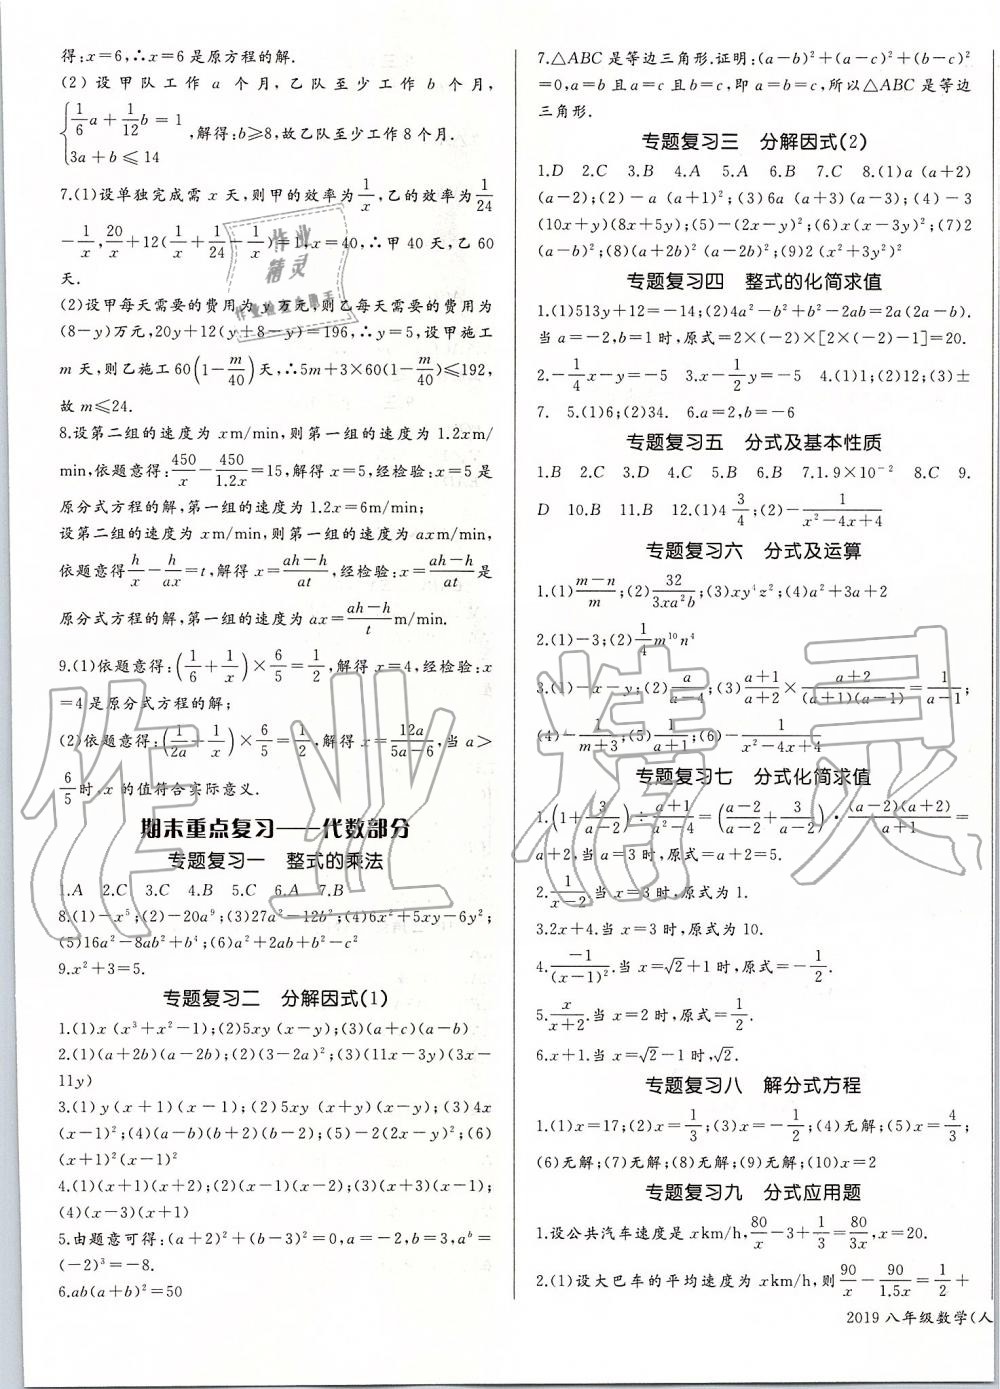 得:x=6,∴x=6是原方程的解.
(2)设甲队工作a个月,乙队至少工作b个月,
{1/6a+1/12b=1
3a+b≤14 ,解得:b≥8,故乙队至少工作8个月.
7.(1)设单独完成需x天,则甲的效率为1/x,乙的效率为1/24
-1/x,20/x+12(1/x+1/24-1/x)=1,x=40,∴甲40天,乙60
天.
(2)设甲每天需要的费用为y万元,则乙每天需要的费用为
(8-y)万元,20y+12(y+8-y)=196,∴y=5,设甲施工
m天,则乙施工60(1-m/40)天,∴5m+3×60(1-m/40)≤192,
故m≤24.
8.设第二组的速度为xm/min,则第一组的速度为1.2xm/
min,依题意得:450/x-450/1.2x=15,解得x=5,经检验:x=5是
原分式方程的解,第一组的速度为1.2x=6m/min;
设第二组的速度为xm/min,则第一组的速度为axm/min,
依题意得h/x-h/ax=t,解得x=ah-h/at,经检验:x=ah-h/at是
原分式方程的解,第一组的速度为ax=ah-h/t m/min.
9.(1)依题意得:(1/6+1/x)×6/5=1/2,解得x=4,经检验:x
=4是原分式方程的解;
(2)依题意得:(1/2a+1/x)×6/5=1/2,解得x=12a/5a-6,当a>
6/5时,x的值符合实际意义.
期末重点复习——代数部分
专题复习一 整式的乘法
1.A 2.C 3.C 4.B 5.C 6.A 7.B
8.(1)-x⁵;(2)-20a⁹;(3)27a²-12b²;(4)6x²+5xy-6y²;
(5)16a²-8ab²+b⁴;(6)a²+2ab+b²-c²
9.x²+3=5.
专题复习二 分解因式(1)
1.(1)x(x³+x²-1);(2)5xy(x-y);(3)(a+c)(a-b)
2.(1)(a+2b)(a-2b);(2)(3-2a)²;(3)(11x-3y)(3x-
11y)
3.(1)y(x+1)(x-1);(2)5xy(x+y)(x-y);(3)4x
(x-1)²;(4)(a-b)(b+2)(b-2);(5)-2(2x-y)²;(6)
(x+1)²(x-1)²
4.(1)(x+1)(x+2);(2)(x-1)(x-2);(3)(x+3)(x-1);
(4)(x-3)(x+1)
5.由题意可得:(a+2)²+(b-3)²=0,a=-2,b=3,aᵇ=
(-2)³=-8.
6.ab(a+b)²=50
7.△ABC是等边三角形.证明:(a-b)²+(a-c)²+(b-c)²
=0,a=b且a=c且b=c,即a=b=c,所以△ABC是等边
三角形.
专题复习三 分解因式(2)
1.D 2.C 3.B 4.A 5.A 6.B 7.C 8.(1)a(a+2)
(a-2);(2)-a(a+1)²;(3)6a(a+3)(a-3);(4)-3
(10x+y)(8x+5y);(5)-(2x-y)²;(6)x(x-3y)²;(7)2
(a-b)²;(8)(a+2b)²(a-2b)²;(9)2(x²+3y²)²
专题复习四 整式的化简求值
1.(1)513y+12=-14;(2)4a²-b²+b²-2ab=2a(2a-b).
当a=-2,b=1时,原式=2×(-2)×[2×(-2)-1]=20.
2.-1/4x-y=-5 3.x-1/2y=-5 4.(1)1;(2)12;(3)±
7. 5.(1)6;(2)34. 6.a=2,b=-6
专题复习五 分式及基本性质
1.B 2.C 3.D 4.C 5.B 6.B 7.1.9×10⁻² 8.C 9.
D 10.B 11.B 12.(1)4 3/4;(2)-1/x²-4x+4
专题复习六 分式及运算
1.(1)m-n/m;(2)32/3xa²b;(3)xy⁴z²;(4)a²+3a+2
2.(1)-3;(2)1/4m¹⁰n⁴
3.(1)-x-y;(2)a/a-4;(3)a+1/a+2×a+2/(a+1)(a-1)=1/a-1;
(4)-1/m+3;(5)1/a+1;(6)-1/x²-4x+4
专题复习七 分式化简求值
1.(1+3/a-2)÷a+1/a²-4=(a-2/a-2+3/a-2)·(a-2)(a+2)/a+1=
a+2,当a=3时,原式=a+2=5.
2.1/x-2.当x=3时,原式为1.
3.2x+4.当x=3时,原式为10.
4.-1/(x-1)².当x=√2+1时,原式=-1/2.
5.x/x+2.当x=2时,原式=1/2.
6.x+1.当x=√2-1时,√2.
专题复习八 解分式方程
1.(1)x=17;(2)x=1/3;(3)x=-1/2;(4)无解;(5)x=4/3;
(6)无解;(7)无解;(8)无解;(9)无解;(10)x=2
专题复习九 分式应用题
1.设公共汽车速度是xkm/h,80/x-3+1/3=80/3x,x=20.
2.(1)设大巴车的平均速度为xkm/h,则90/x-90/1.5x=1/2+
2019八年级数学(人
作业精灵
作业
精灵